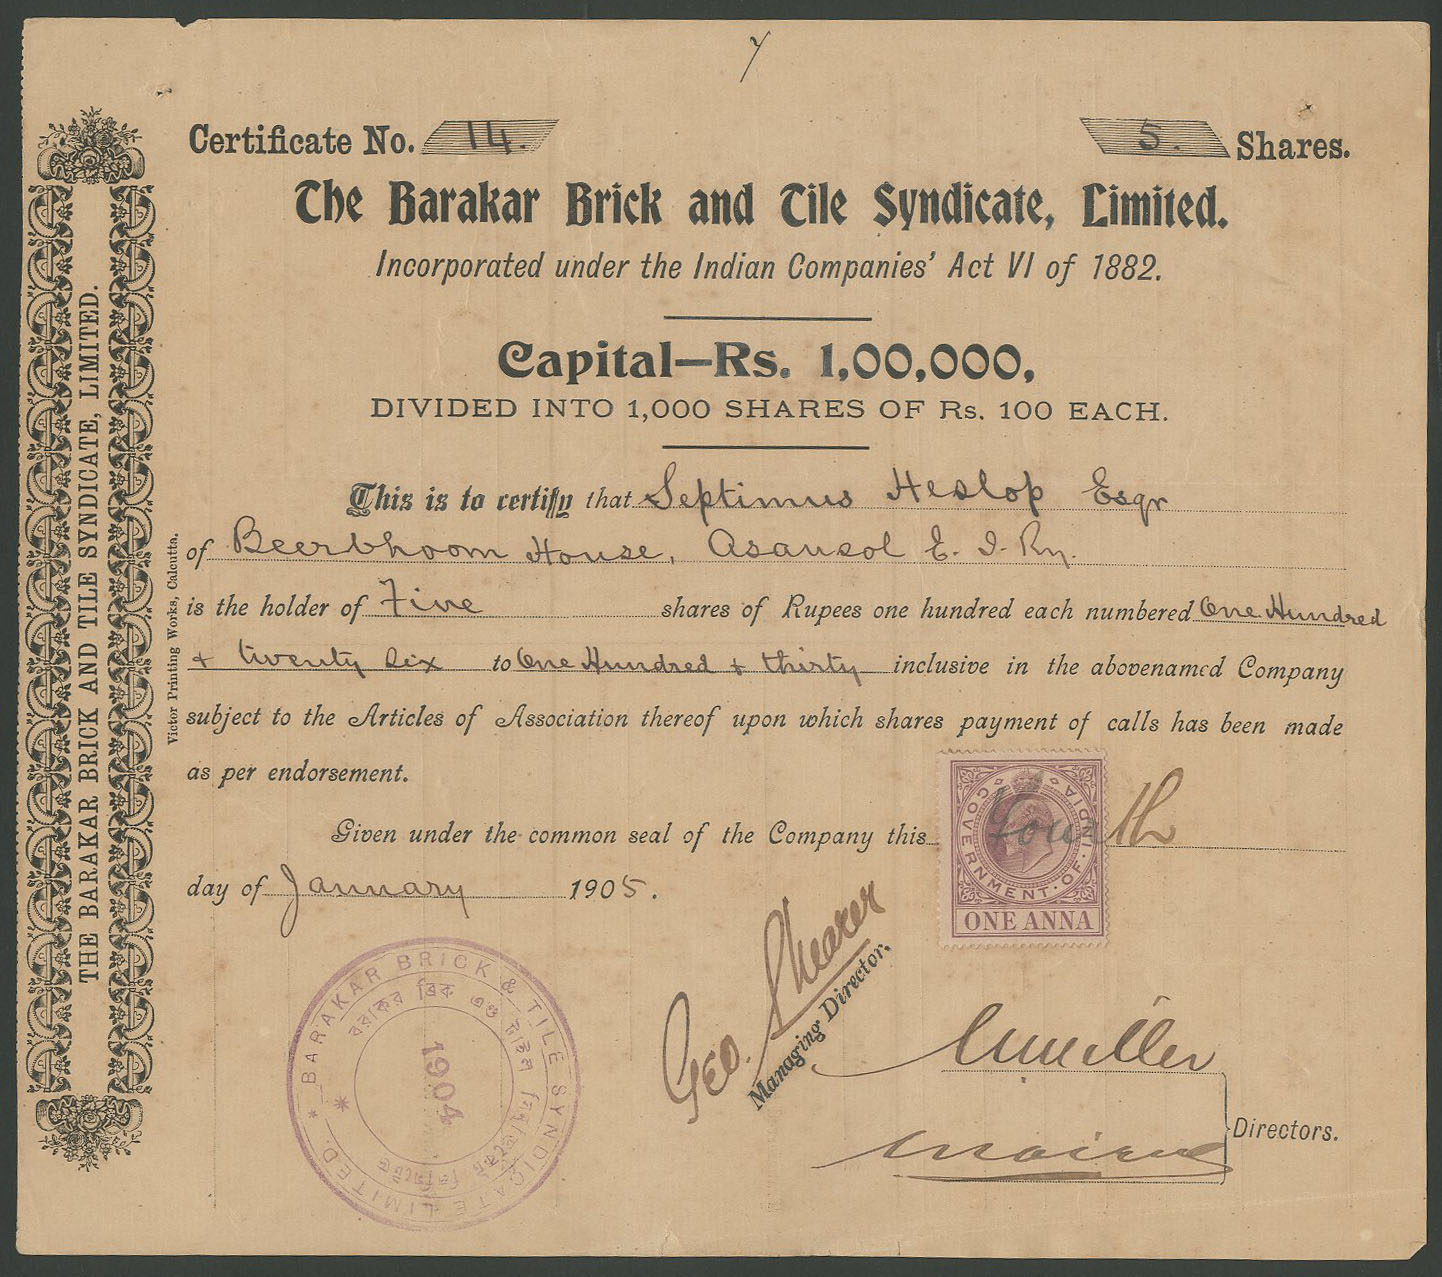 7
Certificate No. 14. 5. Shares.
The Barakar Brick and Tile Syndicate, Limited.
Incorporated under the Indian Companies' Act VI of 1882.
Capital—Rs. 1,00,000,
DIVIDED INTO 1,000 SHARES OF Rs. 100 EACH.
This is to certify that Septimus Heslop Esqr
of Beerbhoom House, Asansol E. I. Ry.
is the holder of Five shares of Rupees one hundred each numbered One Hundred
+ twenty six to One Hundred + thirty inclusive in the abovenamed Company
subject to the Articles of Association thereof upon which shares payment of calls has been made
as per endorsement.
Given under the common seal of the Company this Fourth
day of January 1905.
GOVERNMENT OF INDIA
ONE ANNA
Geo. Shearer
Managing Director.
Directors.
* BARAKAR BRICK & TILE SYNDICATE LIMITED.
বরাকর ব্রিক এণ্ড টাইল সিণ্ডিকেট লিমিটেড
1904
THE BARAKAR BRICK AND TILE SYNDICATE, LIMITED.
Victor Printing Works, Calcutta.